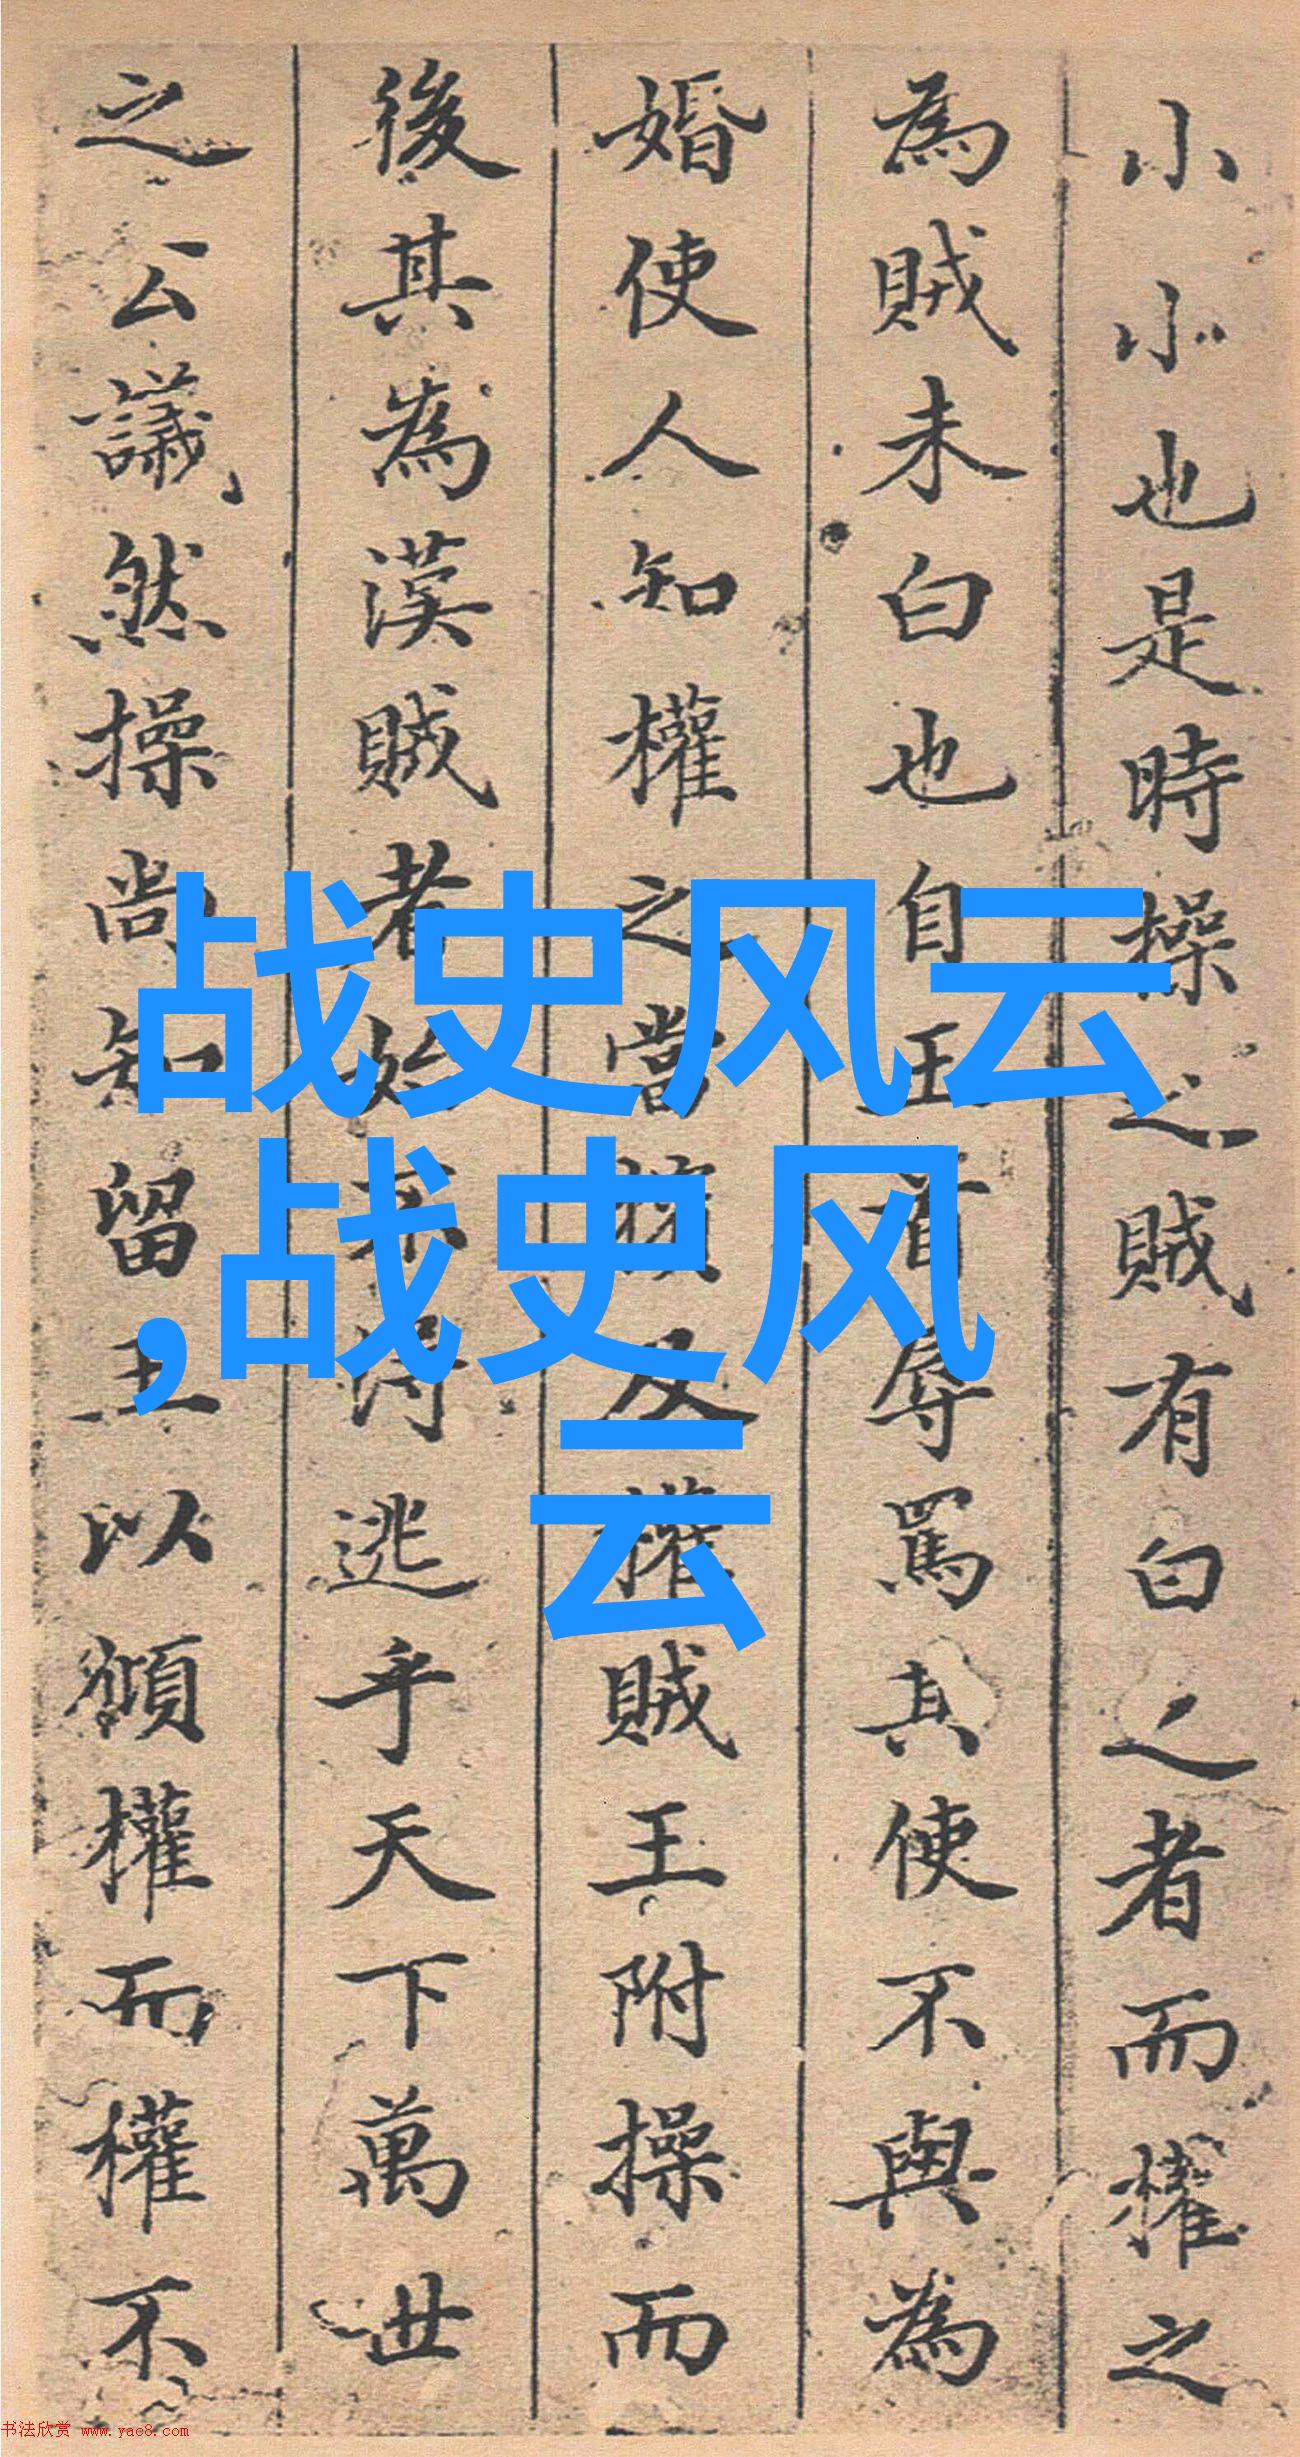 小小也是時操之賊有白之者而權之
為賊未白也自王着辱罵其使不與為
婚使人知權之當擯及權賊王附操而
後其為漢賊者始不得逃乎天下萬世
之公議然操尚知留王以頒權而權不
战史风云
,战史风
云
书法欣赏 www.yac8.com